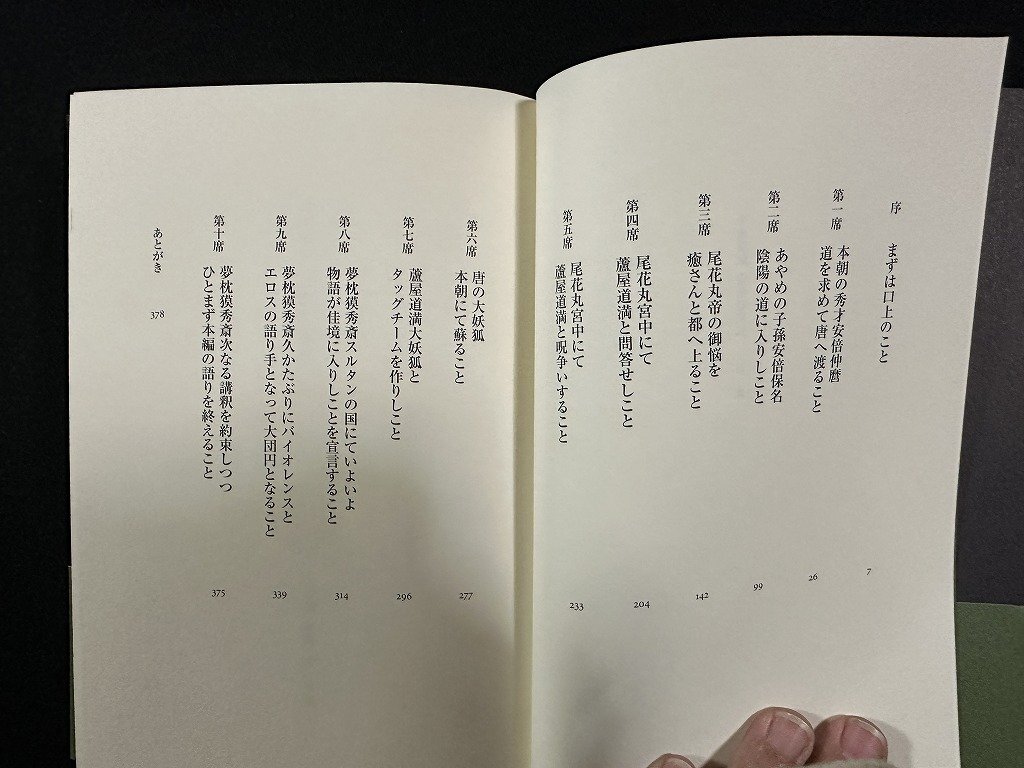 序　まずは口上のこと　7
第一席　本朝の秀才安倍仲麿
道を求めて唐へ渡ること　26
第二席　あやめの子孫安倍保名
陰陽の道に入りしこと　99
第三席　尾花丸帝の御悩を
癒さんと都へ上ること　142
第四席　尾花丸宮中にて
蘆屋道満と問答せしこと　204
第五席　尾花丸宮中にて
蘆屋道満と呪争いすること　233
第六席　唐の大妖狐
本朝にて蘇ること　277
第七席　蘆屋道満大妖狐と
タッグチームを作りしこと　296
第八席　夢枕獏秀斎スルタンの国にていよいよ
物語が佳境に入りしことを宣言すること　314
第九席　夢枕獏秀斎久かたぶりにバイオレンスと
エロスの語り手となって大団円となること　339
第十席　夢枕獏秀斎次なる講釈を約束しつつ
ひとまず本編の語りを終えること　375
あとがき　378